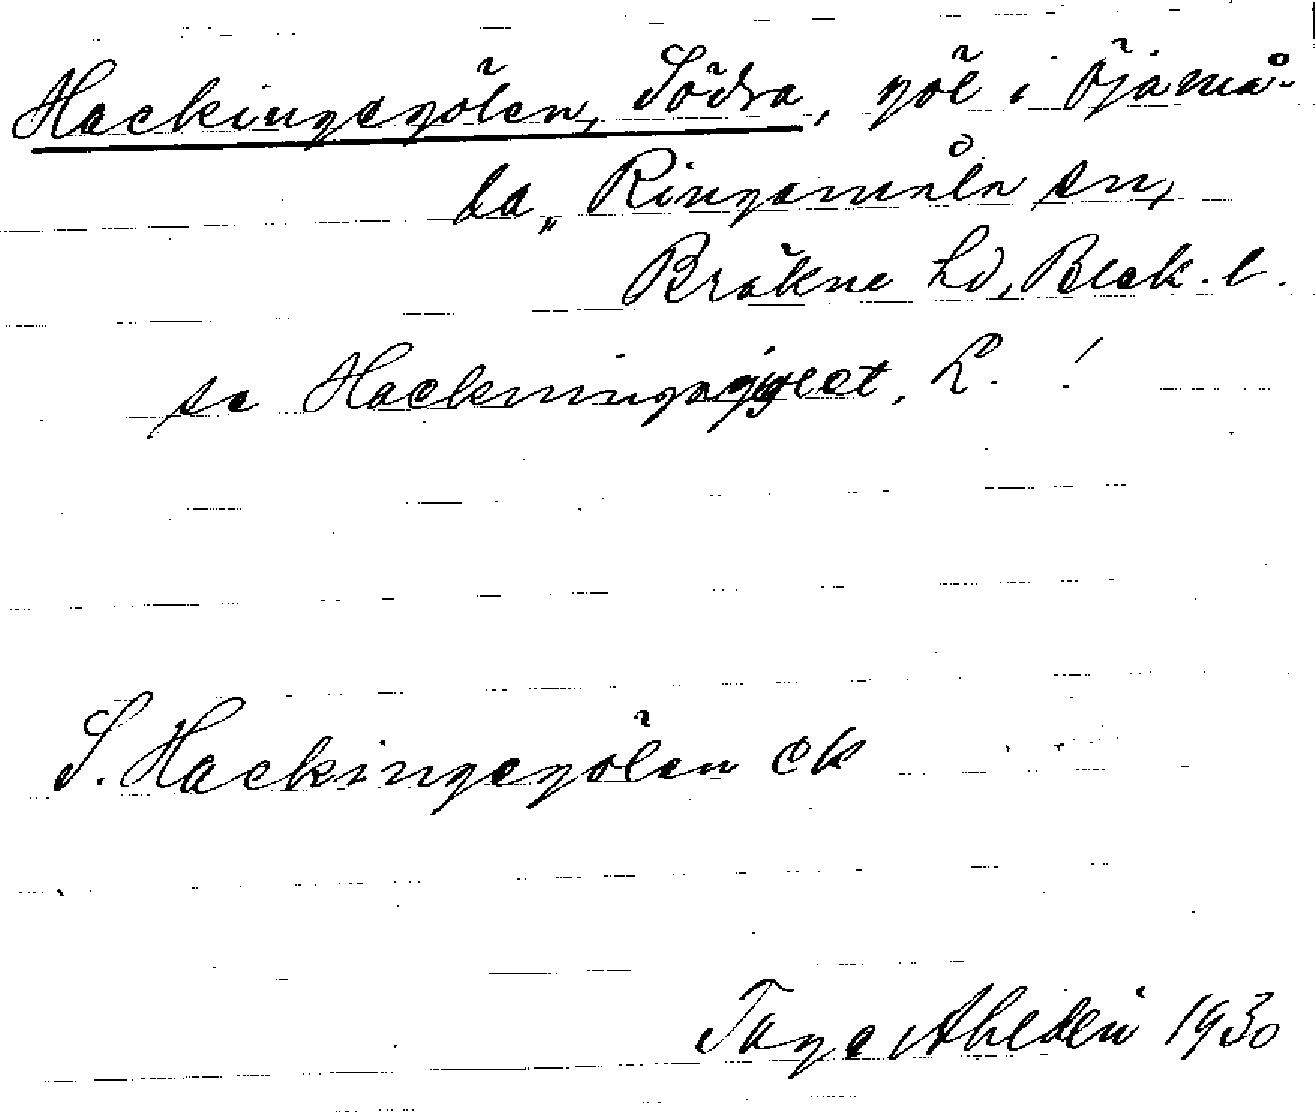 Hackingegölen, Södra, göl i Öjamå-
la, Ringamåla sn,
Bräkne hd, Blek. l.
se Hackninga L. !
S. Hackingegölen ek
Tage Ahldén 1930